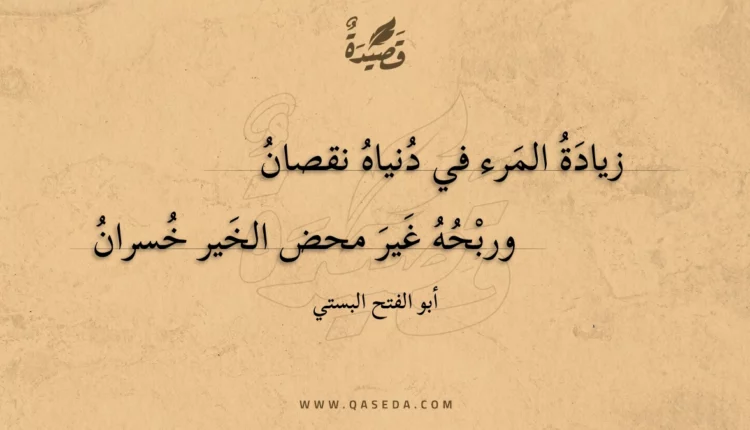 قَصِيدَةٌ
زيادَةُ المَرء في دُنياهُ نقصانُ
وربْحُهُ غَيرَ محض الخَير خُسرانُ
أبو الفتح البستي
WWW.QASEDA.COM